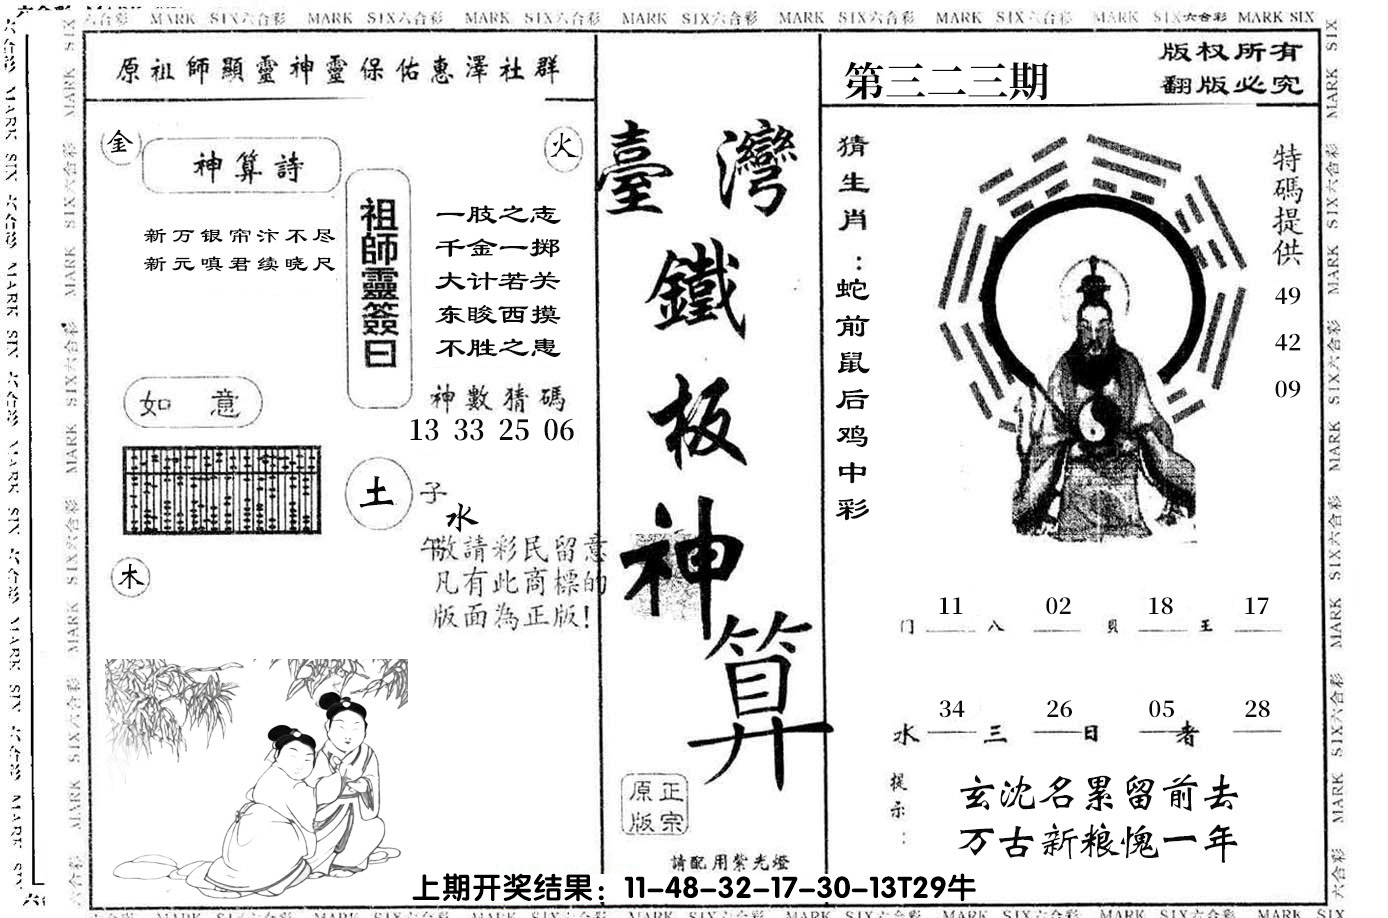 MARK SIX六合彩 MARK SIX六合彩 MARK SIX六合彩 MARK SIX六合彩 MARK SIX六合彩 MARK SIX六合彩 MARK SIX六合彩 MARK SIX
原祖師顯靈神靈保佑惠澤社群
金
火
神算詩
新万银帘汴不尽
新元嗔君续晓尺
祖師靈簽曰
一肢之志
千金一掷
大计若关
东睃西摸
不胜之患
神數猜碼
13 33 25 06
如意
土
子
水
午
木
敬請彩民留意
凡有此商標的
版面為正版!
臺灣
鐵
板
神
算
正宗
原版
請配用紫光燈
第三二三期
版权所有
翻版必究
猜生肖：蛇前鼠后鸡中彩
特碼提供
49
42
09
11 02 18 17
门 八 貝 王
34 26 05 28
水 三 日 者
提示：
玄沈名累留前去
万古新粮愧一年
上期开奖结果：11-48-32-17-30-13T29牛